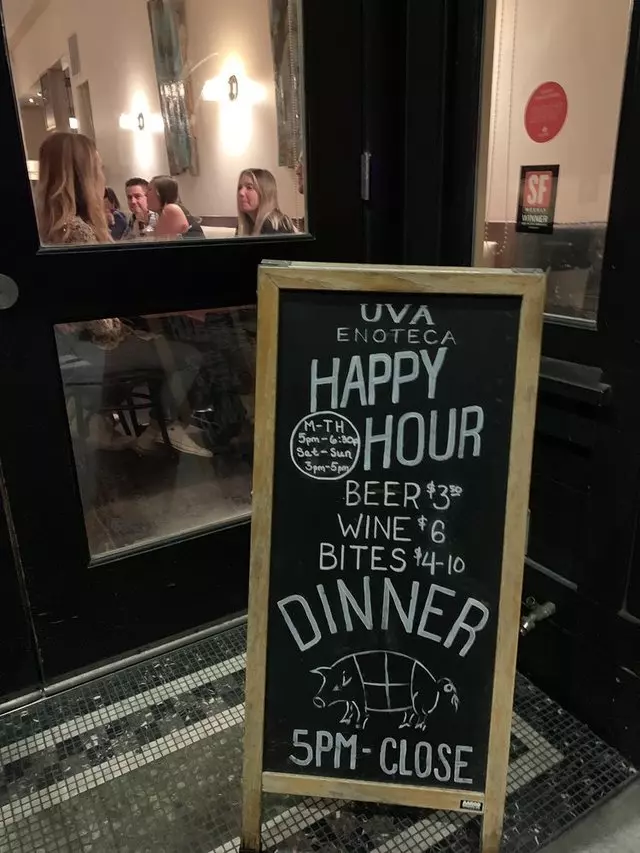 SF
WINNER
UVA
ENOTECA
HAPPY
HOUR
M-TH
5pm-6:30p
Sat-Sun
3pm-5pm
BEER $3⁵⁰
WINE $6
BITES $4-10
DINNER
5PM-CLOSE